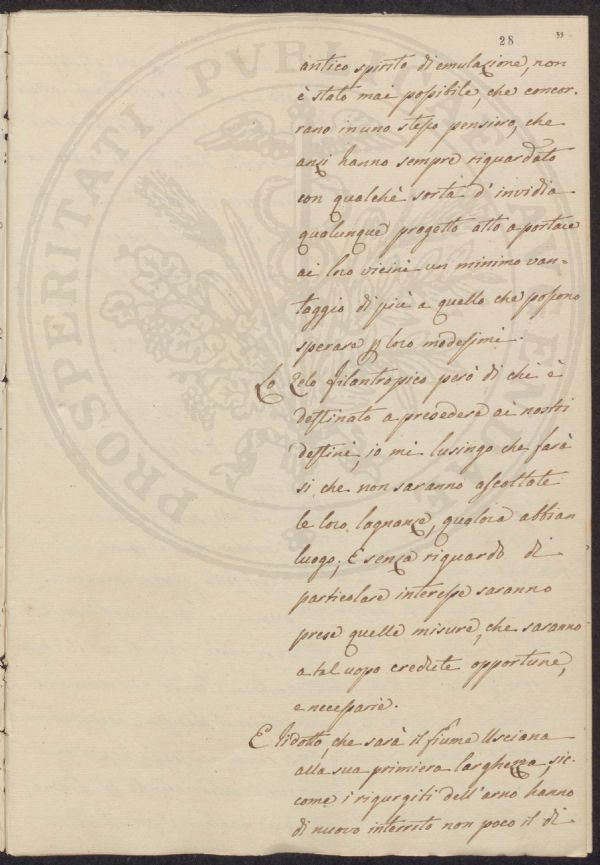 28
antico spirito di emulazione, non
è stato mai possibile, che concor-
rano in uno stesso pensiero, che
anzi hanno sempre riguardato
con qualche sorta d'invidia
qualunque progetto atto a portare
ai loro vicini un minimo van-
taggio di più a quello che possono
sperare p loro medessimi.
Lo Zelo filantropico però di chi è
destinato a presedere ai nostri
destini, io mi lusingo che farà
si, che non saranno ascoltate
le loro lagnanze, qualora abbian
luogo; E senza riguardo di
particolare interesse saranno
prese quelle misure, che saranno
a tal uopo credute opportune,
e necessarie.
E ridotto, che sarà il fiume Usciana
alla sua primiera larghezza, sic-
come i rigurgiti dell'arno hanno
di nuovo interrito non poco il di
PROSPERITATI PVBLICAE AVGENDAE